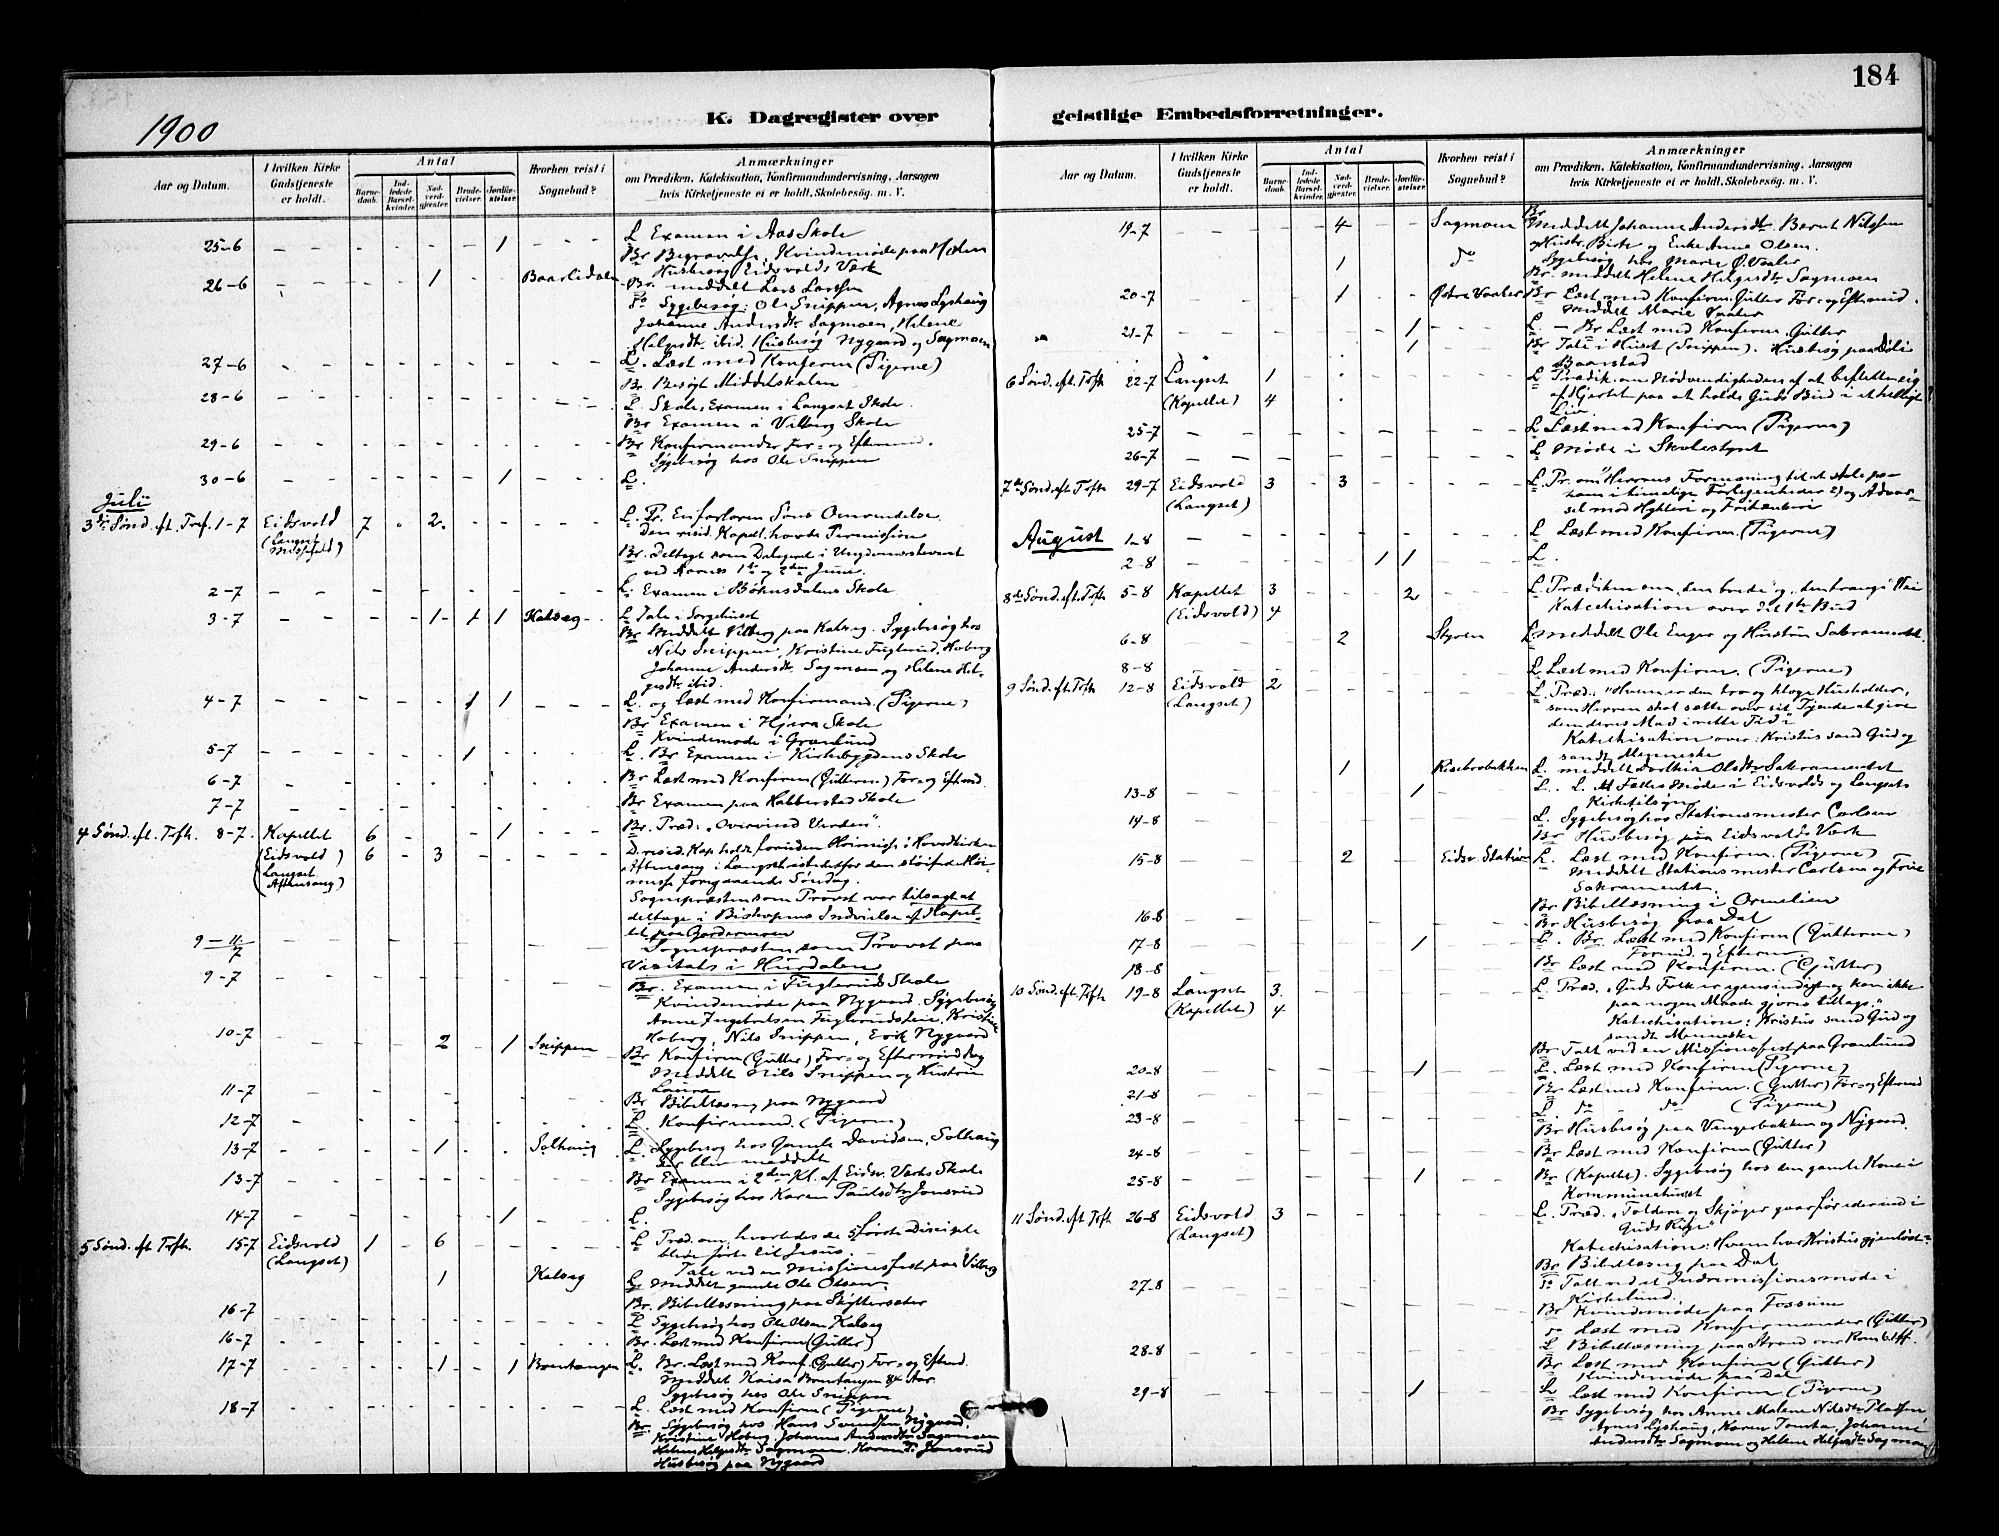 184
K. Dagregister over geistlige Embedsforretninger.
1900
Aar og Datum.
I hvilken Kirke Gudstjeneste er holdt.
Antal
Barnedaab.
Indledede Barselkvinder.
Nadverdgjæster.
Brudevielser.
Jordfæstelser.
Hvorhen reist i Sognebud?
Anmærkninger
om Prædiken, Katekisation, Konfirmandundervisning, Aarsagen
hvis Kirketjeneste ei er holdt, Skolebesøg. m. V.
25-6 - - - - - 1 - - - L Examen i Aas Skole
Br Begravelse, Kvindemøde paa Molen
Husbesøg Eidsvolds Værk
26-6 - - - 1 - - Baarlidalen Br. meddelt Lars Larsen
do Sygebesøg: Ole Snippen, Agnes Lyshaug
Johanne Andersdtr Sagmoen, Helene
Helgesdtr ibid. Husbesøg Nygaard og Sagmoen
27-6 L. Læst med Konfirm (Pigerne)
Br. Besøgt Middelskolen
28-6 L. Skole, Examen i Langset Skole.
Br Examen i Vilberg Skole
29-6 Br Konfirmander For- og Eftermid.
Sygebesøg hos Ole Snippen
30-6 - - - - - 1 - L.
Juli
3die Sønd. eft. Tref. 1-7 Eidsvold 7 " 2. L. Pr. En fortoren Søns Omvendelse.
(Langset Messefald) Den resid. Kapell. havde Permission
Br. deltaget som Delegeret i Ungdomsstevnet
ved Aarnes 1ste og 2den Juli.
2-7 L. Examen i Bøhnsdalens Skole
3-7 - - - 1 - 1 1 Kalseg - L Tale i Sørgehuset
Br Meddelt Vilberg paa Kalseg. Sygebesøg hos
Nils Snippen, Kristine Fuglerud, Hoberg
Johanne Andersdtr. Sagmoen og Helene Helgesdtr ibid.
4-7 - - - - 1 1 - - - L. og læst med Konfirmand. (Pigerne)
Br Examen i Hjera Skole
Kvindemøde i Grønlund
5-7 - - - - 1 L. Br Examen i Kirkebygdens Skole
6-7 Br Læst med Konfirm (Gutterne) For- og Efterm.
7-7 Br Examen paa Habberstad Skole
4 Sønd. eft. Trefh. 8-7. Kapellet 6 - - - 1 - Br. Præd: "Overvind Verden".
(Eidsvold) 6 - 3 D. resid. Kap. holdt foruden Høimesse i Hovedkirken
(Langset Aftensang) Aftensang i Langset istedetfor den sløifede Høimesse
foregaaende Søndag.
Sognepræsten som Provst var tilsagt at
deltage i Biskopens Indvielse af Kapellet
paa Gardermoen
9-11/7 Sognepræsten som Provst paa
Visitats i Hurdalen
9-7 Br. Examen i Fuglerud Skole
Kvindemøde paa Nygaard. Sygebesøg
Anne Ingebretsen Fuglerudseie, Kristine
Hoberg, Nils Snippen, Erik Nygaard
10-7 - - - 2 - 1 Snippen Br Konfirm (Gutter) For- og Eftermiddag
Meddelt Nils Snippen og Hustru
Laura
11-7 Br Bibellæsning paa Nygaard
12-7 L. Konfirmand. (Pigerne)
13-7 - - - 1 - - Solhaug L. Sygebesøg hos Gamle Davidsen, Solhaug
der blev meddelt
13-7 Br Examen i 2den Kl. af Eidsv. Værks Skole
Sygebesøg hos Karen Paulsdtr Jonsrud
14-7 - - - - - 1 - L.
5 Sønd. eft Trefh. 15-7 Eidsvold 1 - 6 L Præd. om, hvorledes de 5 første Disciple
(Langset) blev førte til Jesus.
Tale ved en Missionsfest paa Vilberg
1 Kalseg L meddelt gamle Ole Olsen
16-7 Br. Bibellæsning paa Skyttersæter
L Sygebesøg hos Ole Olsen Kalseg
16-7 Br. Læst med Konfirm (Gutter)
17-7 - - - 1 - 1 Brentangen L. Br. Læst med Konf. (Gutter) For- og Efterm.
Meddelt Kaisa Brentangen 84 Aar
Sygebesøg hos Ole Snippen
18-7 L. Læst med Konfirm (Pigerne)
Br Sygebesøg hos Hans Svendsen Nygaard,
Kristine Hoberg, Johanne Andersdtr Sagmoen
Helene Helgesdtr Sagmoen, Jonsrud
Husbesøg paa Nygaard
Aar og Datum.
I hvilken Kirke Gudstjeneste er holdt.
Antal
Barnedaab.
Indledede Barselkvinder.
Nadverdgjæster.
Brudevielser.
Jordfæstelser.
Hvorhen reist i Sognebud?
Anmærkninger
om Prædiken, Katekisation, Konfirmandundervisning, Aarsagen
hvis Kirketjeneste ei er holdt, Skolebesøg. m. V.
19-7 - - - 4 - - Sagmoen Br Meddelt Johanne Andersdtr. Bernt Nilssen
og Hustr. Birte og Enke Anne Olsen.
Sygebesøg hos Marie Ø. Vaaler
1 do Br. meddelt Helene Helgesdtr Sagmoen
20-7 - - - 1 - - Østre Vaaler Br Læst med Konfirm. Gutter For- og Eftmid.
Meddelt Marie Vaaler
21-7 - - - - - 1 L. - Br Læst med Konfirm, Gutter
1 Br Tale i Huset (Snippen). Husbesøg paa
Baarstad
6 Sønd. eft. Trefh 22-7 Langset 1 L Prædik. om Nødvendigheden af at beflitte sig
(Kapellet) 4 af Hjertet paa at holde Guds Bud i et helligt
Liv.
25-7 L Læst med Konfirm (Pigerne)
26-7 L Møde i Skolestyret
7de Sønd eft Trefh 29-7 Eidsvold 3 - 3 L. Pr. om "Herrens Formaning til at stole paa
(Langset) ham i timelige Forlegenheder 2) og Advarsel
mod Hykleri og Fritænkeri
August 1-8 L Læst med Konfirm. (Pigerne)
2-8 - - - - 1 1 L.
8de Sønd. eft. Trefh 5-8 Kapellet 3 - - - - 2 L. Prædiken om "den brede" og "den trange" Vei
(Eidsvold) 4 Katechisation over det 1ste Bud
6-8 - - - 2 Styren L meddelt Ole Enger og Hustru Sakramentet.
8-8 L Læst med Konfirm. (Pigerne)
9 Sønd. eft Trefh 12-8 Eidsvold 2 L. Præd.: "Hvem er den tro og kloge Husholder,
(Langset) som Herren skal sætte over sit Tjende at give
dem deres Mad i rette Tid"
Katechisation over: Kristus sand Gud og
sandt Menneske
1 Risebrobakken L. meddelt Dorthea Olsdtr Sakramentet
13-8 - - - - - 1 L. L. At Fælles Møde i Eidsvolds og Langsets
Kirketilsyn
14-8 L. Sygebesøg hos Stationsmester Carlsen
Br Husbesøg paa Eidsvolds Værk
15-8 - - - 2 - - Eidsv. Station L. Læst med Konfirm. (Pigerne)
Meddelt Stationsmester Carlsen og Frue
Sakramentet.
Br Bibellæsning i Ormelien
16-8 Br Husbesøg paa Dal
17-8 - - - - - 1 L. Br. Læst med Konfirm (Gutterne)
Formid. og Efterm.
18-8 Br Læst med Konfirm. (Gutter)
10 Sønd. eft Trefh 19-8 Langset 3. L. Præd. "Guds Folk er egensindigt og kan ikke
(Kapellet) 4 paa nogen Maade gjøres tillags."
Katechisation: Kristus sand Gud og
sandt Menneske
Br Talt ved en Missionsfest paa Grønlund
20-8 - - - - - 1 L. Læst med Konfirm (Pigerne)
21-8 Br Læst med Konfirm. (Gutter) For- og Eftermid
L do do (Pigerne)
23-8 Br Husbesøg paa Vingerbakken og Nygaard.
24-8 Br Læst med Konfirm (Gutter)
25-8 - - - - - 1 Br (Kapellet). Sygebesøg hos den gamle Kone i
Kommunehuset
11 Sønd. eft Trefh 26-8 Eidsvold 3 L. Præd. "Toldere og Skjøger gaar før eder ind i
(Langset) Guds Rige"
Katechisation: Hvem har Kristus gjenløst?
Br Bibellæsning paa Dal
27-8 do Talt ved et Indremissionsmøde i
Kirkelund.
Br Kvindemøde paa Fossum
do Læst med Konfirmander (Gutter)
28-8 L Bibellæsning paa Strand
Br Læst med Konfirm (Gutter)
Kvindemøde paa Dal
29-8 - - - - - 1 L Læst med Konfirm (Pigerne)
Br Sygebesøg hos Anne Malene Nilsdtr
Agnes Lyshaug, Karen Tomta, Johanne
Andersdtr Sagmoen og Helene Helgesdtr Sagmoen